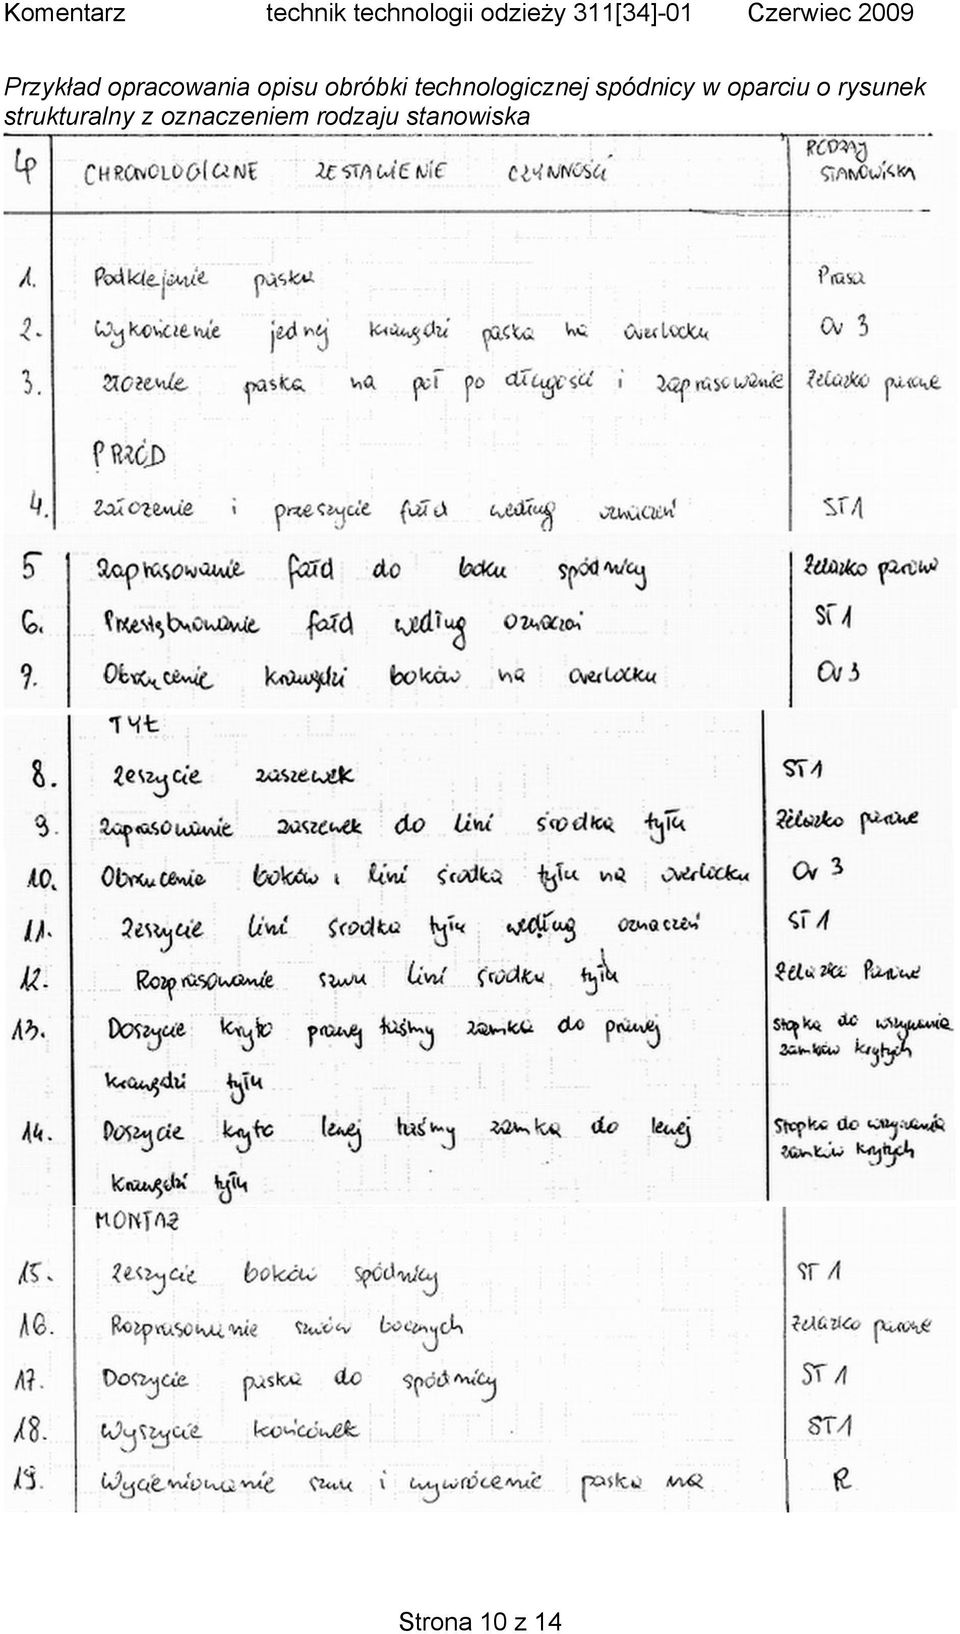 Komentarz technik technologii odzieży 311[34]-01 Czerwiec 2009
Przykład opracowania opisu obróbki technologicznej spódnicy w oparciu o rysunek
strukturalny z oznaczeniem rodzaju stanowiska
Lp CHRONOLOGICZNE ZESTAWIENIE CZYNNOŚCI RODZAJ STANOWISKA
1. Podklejenie paska Prasa
2. Wykończenie jednej krawędzi paska na overlocku Ov 3
3. złożenie paska na pół po długości i zaprasowanie żelazko parowe
PRZÓD
4. założenie i przeszycie fałd według oznaczeń ST1
5 zaprasowanie fałd do boku spódnicy żelazko parowe
6. Przestębnowanie fałd według oznaczeń ST 1
7. Obrzucenie krawędzi boków na overlocku Ov 3
TYŁ
8. zeszycie zaszewek ST1
9. zaprasowanie zaszewek do lini środka tyłu żelazko parowe
10. Obrzucenie boków i lini środka tyłu na overlocku Ov 3
11. zeszycie lini środka tyłu według oznaczeń ST 1
12. Rozprasowanie szwu lini środka tyłu żelazko Parowe
13. Doszycie kryto prawej taśmy zamka do prawej stopka do wszywania
krawędzi tyłu zamków krytych
14. Doszycie kryto lewej taśmy zamka do lewej stopka do wszywania
krawędzi tyłu zamków krytych
MONTAŻ
15. zeszycie boków spódnicy ST 1
16. Rozprasowanie szwów bocznych żelazko parowe
17. Doszycie paska do spódnicy ST 1
18. Wyszycie końcówek ST1
19. Wycieniowanie szwu i wywrócenie paska na R
Strona 10 z 14